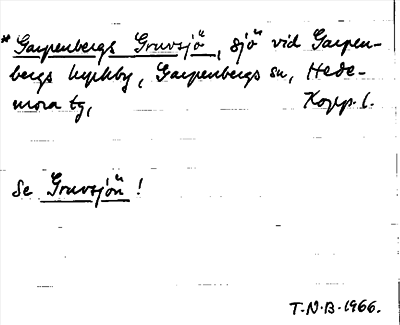 * Garpenbergs Gruvsjö, sjö vid Garpen-
bergs kyrkby, Garpenbergs sn, Hede-
mora tg, Kopp. l.
Se Gruvsjön !
T.N.B. 1966.